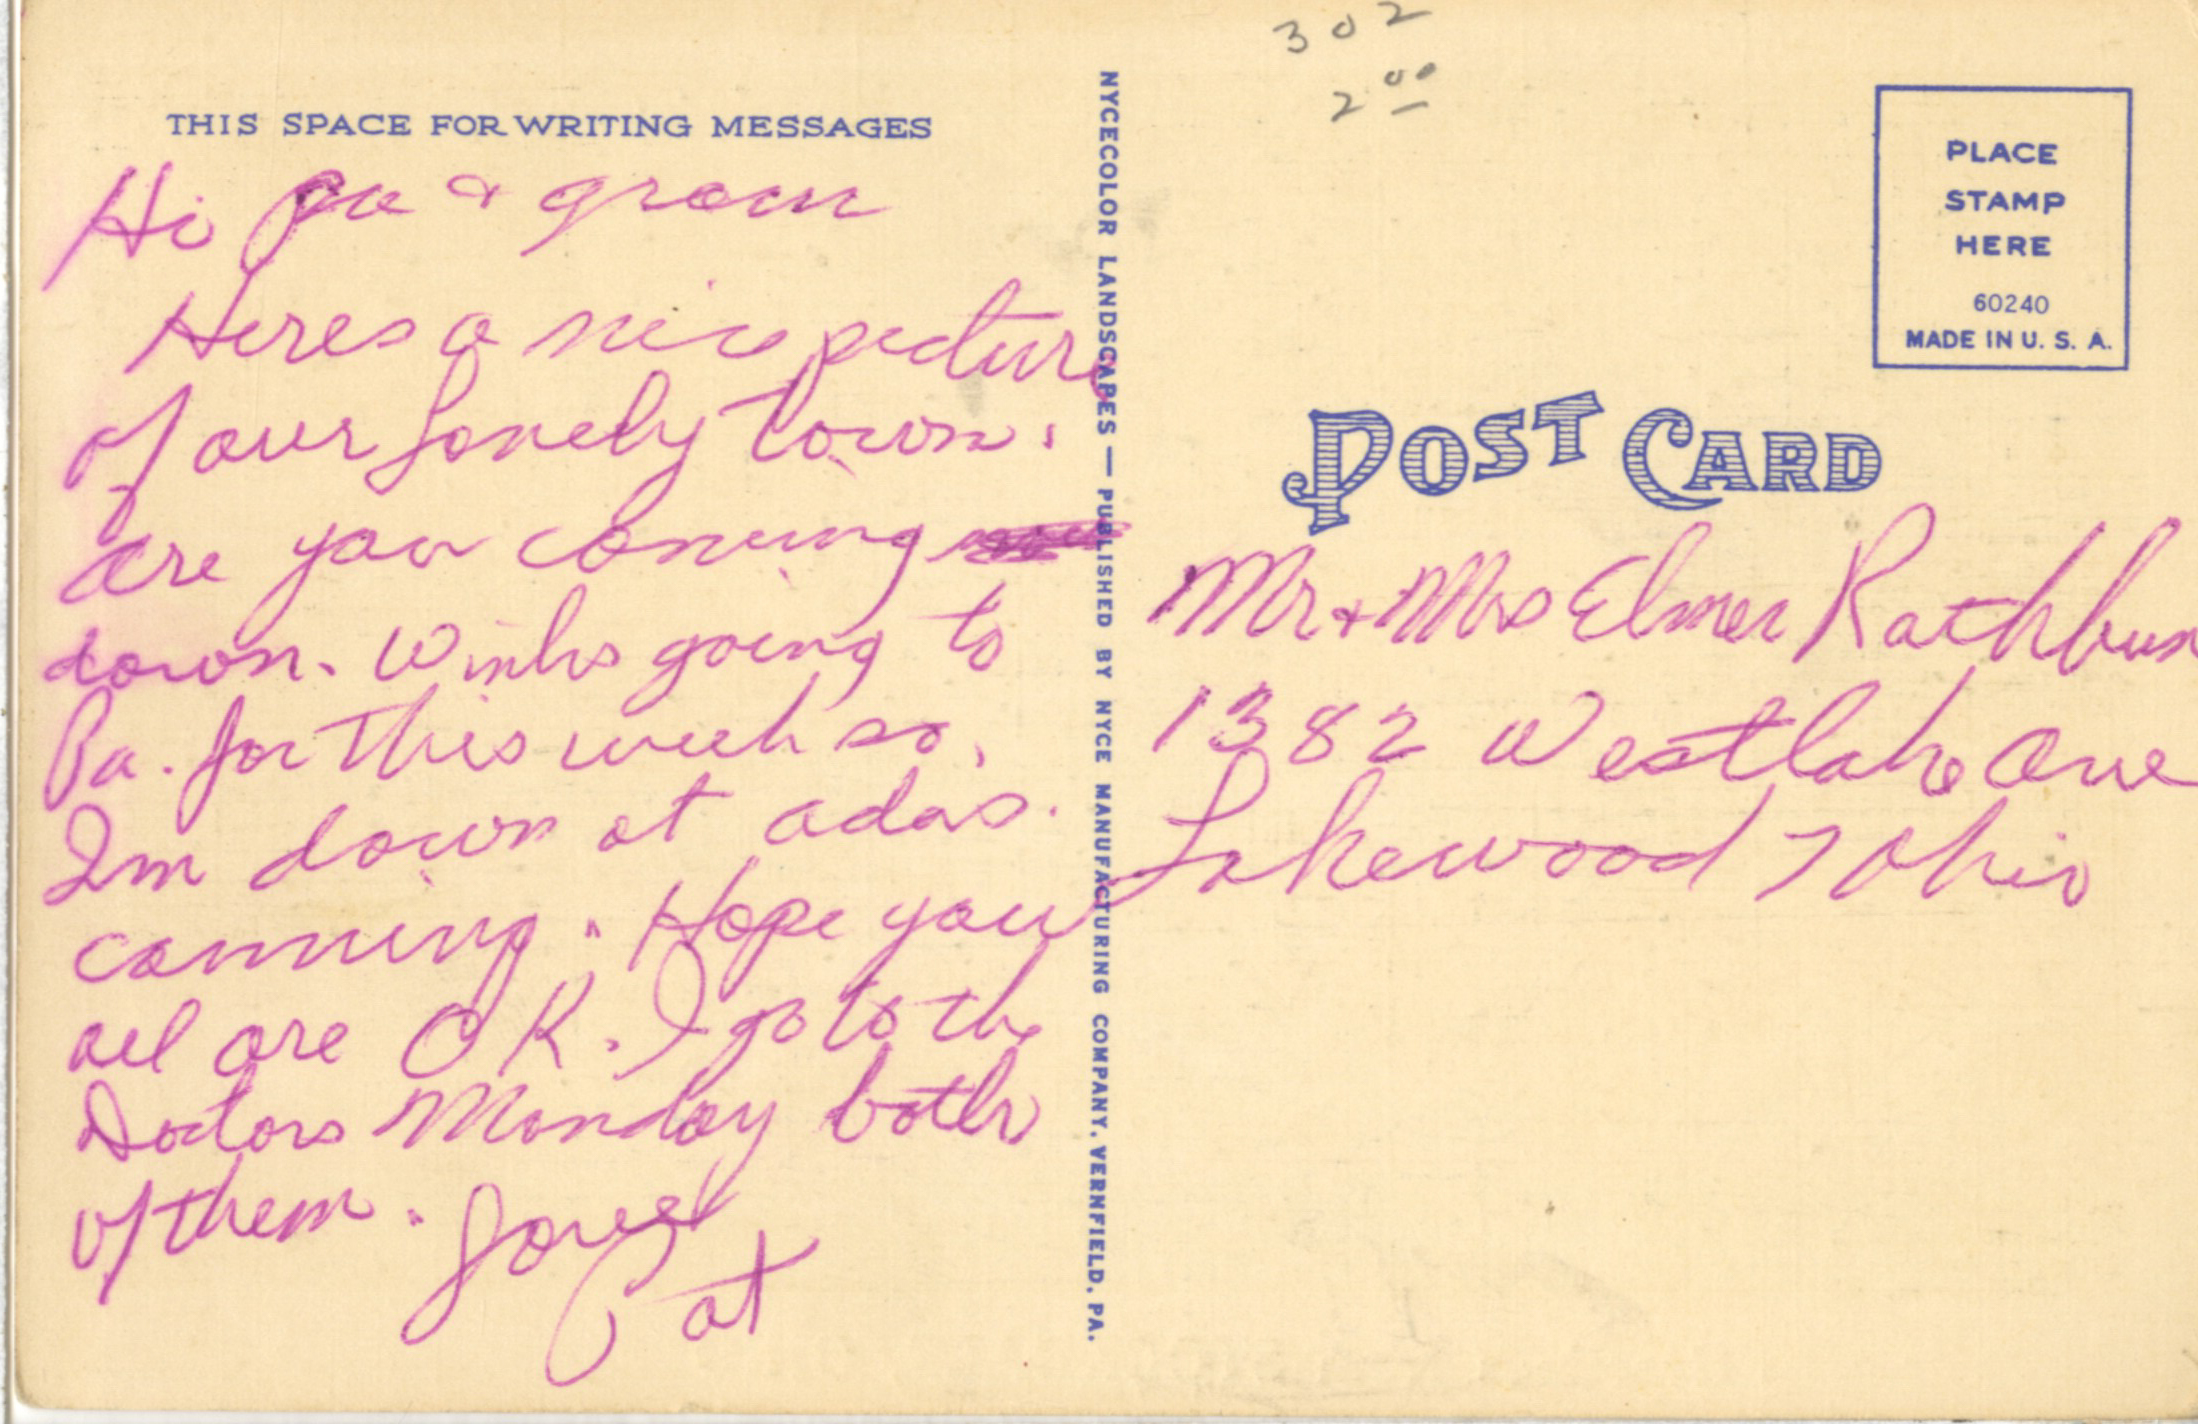 302
2 00
THIS SPACE FOR WRITING MESSAGES
Hi pa & gram
Heres a nice picture
of our lonely town.
are you coming
down. Winks going to
Pa. for this week so,
Im down at adas.
canning. Hope you
all are O K. I go to the
Doctors Monday both
of them. Love
Pat
NYCECOLOR LANDSCAPES — PUBLISHED BY NYCE MANUFACTURING COMPANY, VERNFIELD, PA.
PLACE
STAMP
HERE
60240
MADE IN U. S. A.
POST CARD
Mr + Mrs Elmer Rathbun
1382 Westlake Ave
Lakewood 7 Ohio